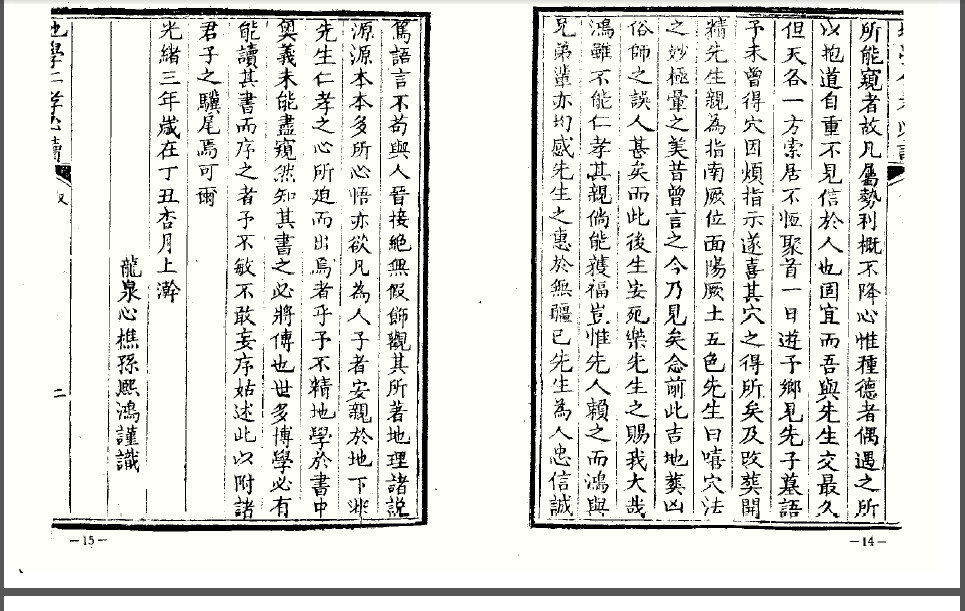 所能窺者故凡屬勢利概不降心惟種德者偶遇之所
以抱道自重不見信於人也固宜而吾與先生交最久
但天各一方索居不恆聚首一日遊予鄉見先子墓語
予未曾得穴因煩指示遂喜其穴之得所矣及改葬開
精先生親為指南厥位面陽厥土五色先生曰嘻穴法
之妙極暈之美昔曾言之今乃見矣念前此吉地葬凶
俗師之誤人甚矣而此後生安死樂先生之賜我大哉
鴻雖不能仁孝其親倘能獲福豈惟先人賴之而鴻與
兄弟輩亦均感先生之惠於無疆已先生為人忠信誠
—14—
篤語言不苟與人晉接絕無假飾觀其所著地理諸說
源源本本多所心悟亦欲凡為人子者安親於地下非
先生仁孝之心所迫而出焉者乎予不精地學於書中
奧義未能盡窺然知其書之必將傳也世多博學必有
能讀其書而序之者予不敏不敢妄序姑述此以附諸
君子之驥尾焉可爾
光緒三年歲在丁丑杏月上澣
龍泉心樵孫熙鴻謹識
地學仁孝必讀
二
—15—